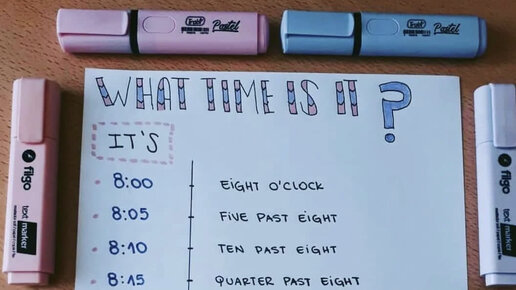 Trabi Pastel
Trabi Pastel
WHAT TIME IS IT?
IT'S
8:00 EIGHT O'CLOCK
8:05 FIVE PAST EIGHT
8:10 TEN PAST EIGHT
8:15 QUARTER PAST EIGHT
filgo
text marker
filgo
text marker